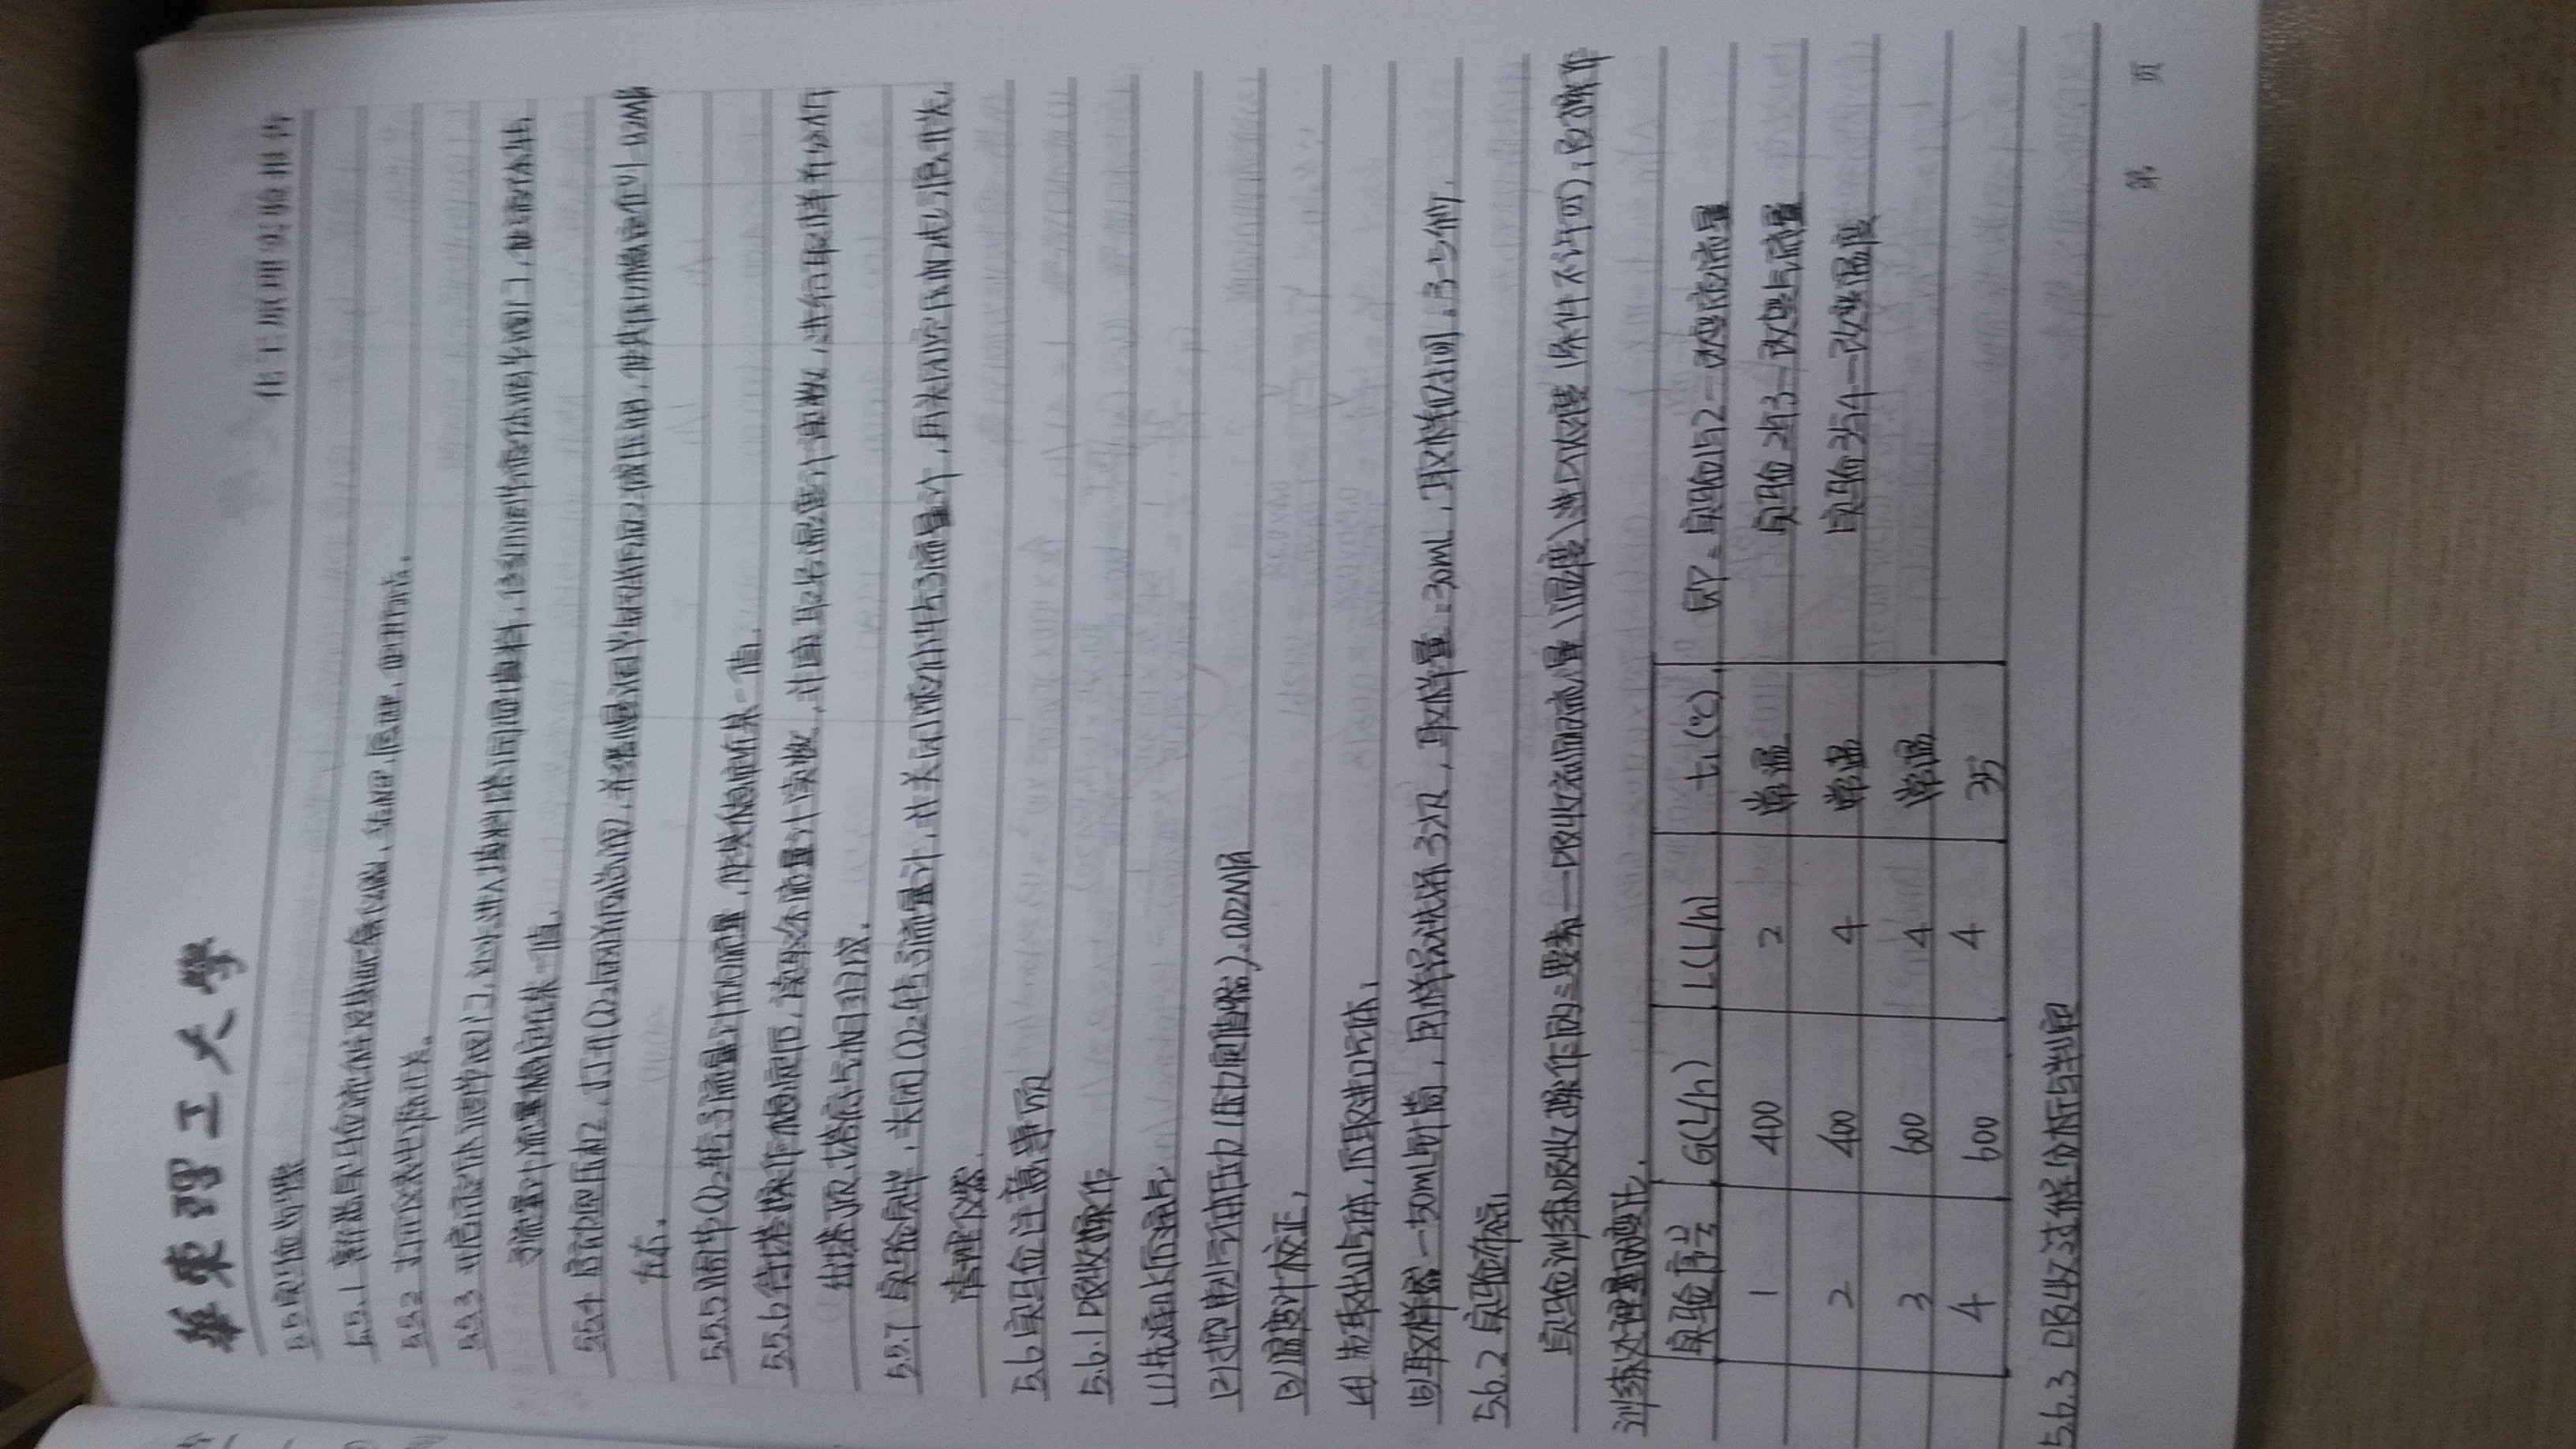 華東理工大學
化工原理实验报告
5.5 实验步骤
5.5.1 熟悉实验流程及其配套仪器、结构、原理、使用方法。
5.5.2 打开仪表电源开关。
5.5.3 开启液体调节阀门,让水进入填料塔润湿填料,仔细调节液体调节阀门,使流体转
子流量计流量稳定在某一值.
5.5.4 启动空压机,打开CO₂钢瓶总阀,并缓慢调节钢瓶减压阀,使其压力稳定在0.1-0.2MPa
左右.
5.5.5 调节CO₂转子流量计的流量,使其稳定在某一值.
5.5.6 待塔操作稳定后,读取各流量计读数,并读取各温度计读数,进行取样并分析
出塔顶、塔底气相组成.
5.5.7 实验完毕,关闭CO₂转子流量计,并关闭液体转子流量计,再关闭空压机电源开关,
清理仪器.
5.6 实验注意事项
5.6.1 吸收操作
(1)先灌水后通气
(2)控制气体压力(压力定值器):0.02MPa
(3)温度计校正;
(4) 先取出口气体,后取进口气体;
(5)取样器—50mL针筒,用样品洗涤3次,取样量:30mL,取样时间:3-5分钟.
5.6.2 实验布点
实验训练吸收操作的三要素—吸收剂的流量\温度\进口浓度(条件不许可),及操作
训练处理量的变化.
实验序号 G(L/h) L(L/h) t₁(℃) 即:实验1与2—改变液流量
1 400 2 常温 实验2与3—改变气流量
2 400 4 常温 实验3与4—改变温度
3 600 4 常温
4 600 4 35
5.6.3 吸收过程分析与判定
第 页